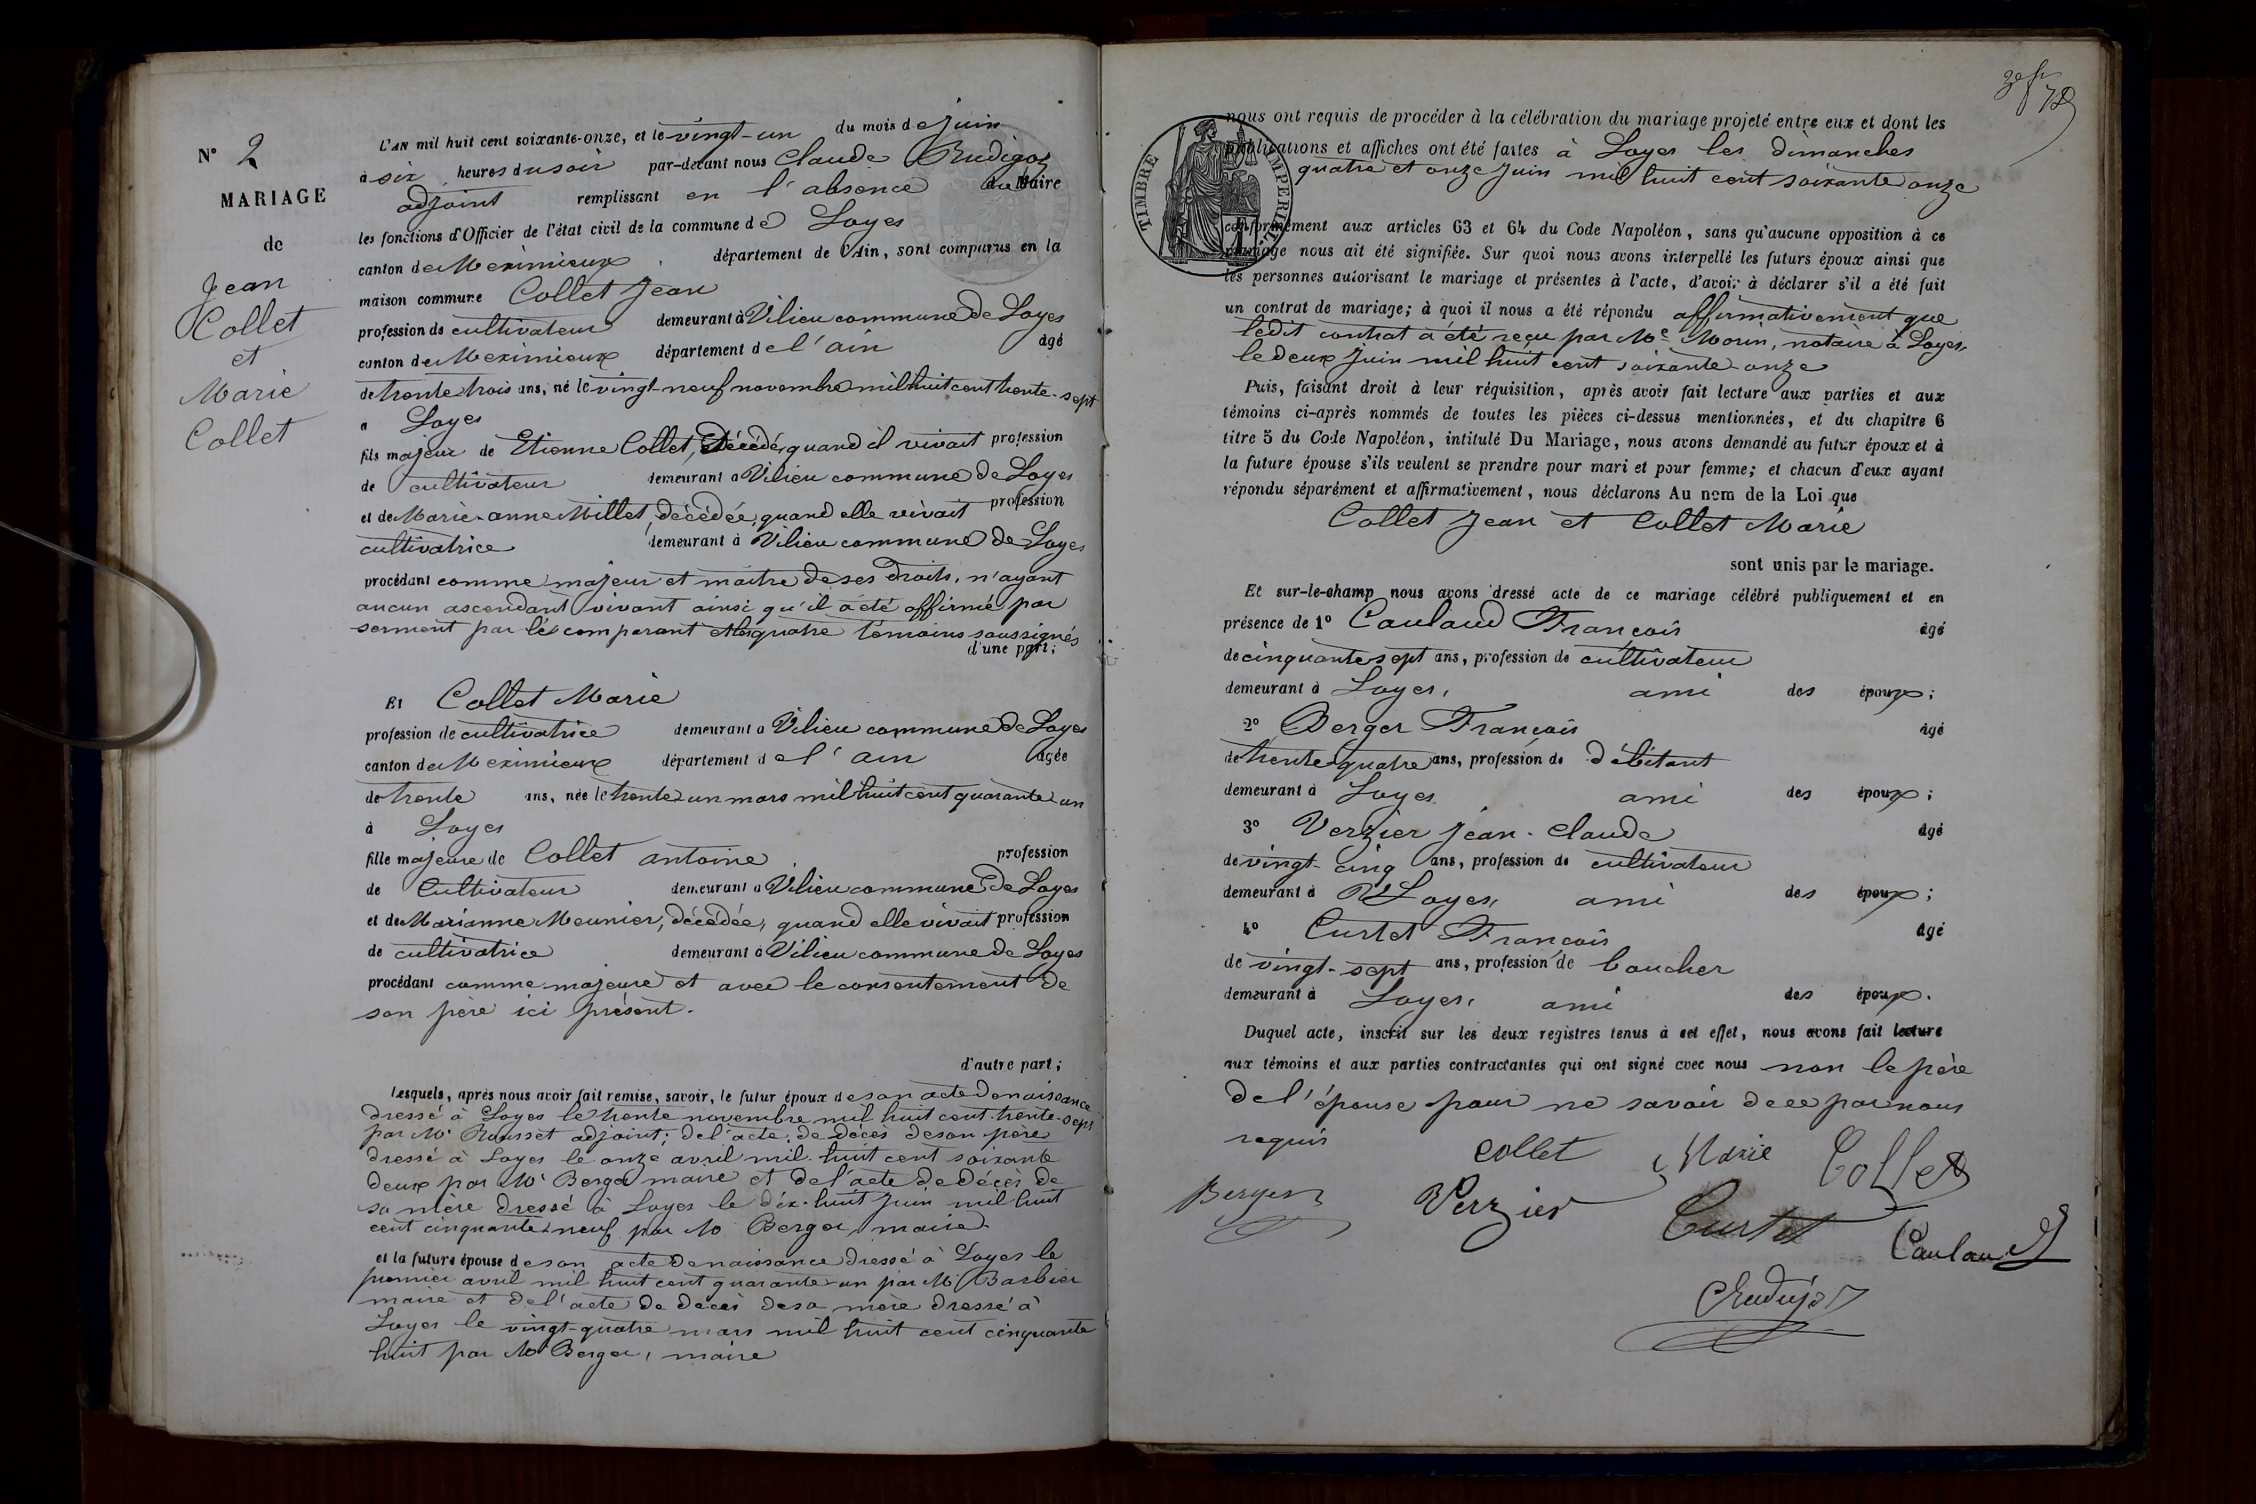 N° 2
MARIAGE
de
Jean
Collet
et
Marie
Collet
L'AN mil huit cent soixante-onze, et le vingt-un du mois de juin
à six heures du soir par-devant nous Claude Rudigoz
adjoint remplissant en l'absence du Maire
les fonctions d'Officier de l'état civil de la commune de Loyes
canton de Meximieux, département de l'Ain, sont comparus en la
maison commune Collet Jean
profession de cultivateur demeurant à Vilieu commune de Loyes
canton de Meximieux département de l'ain âgé
de trente trois ans, né le vingt-neuf novembre mil huit cent trente-sept
a Loyes
fils majeur de Etienne Collet, décédé, quand il vivait profession
de cultivateur demeurant a Vilieu commune de Loyes
et de Marie-anne Millet, décédée, quand elle vivait profession
cultivatrice demeurant à Vilieu commune de Loyes
procédant comme majeur et maître de ses droits, n'ayant
aucun ascendant vivant ainsi qu'il a été affirmé par
serment par les comparant et les quatre témoins soussignés
d'une part;
Et Collet Marie
profession de cultivatrice demeurant a Vilieu commune de Loyes
canton de Meximieux département de l'ain âgée
de trente ans, née le trente-un mars mil huit cent quarante-un
à Loyes
fille majeure de Collet antoine profession
de Cultivateur demeurant a Vilieu commune de Loyes
et de Marianne Meunier, décédée, quand elle vivait profession
de cultivatrice demeurant à Vilieu commune de Loyes
procédant comme majeure et avec le consentement de
son père ici présent.
d'autre part;
Lesquels, après nous avoir fait remise, savoir, le futur époux de son acte de naissance
dressé à Loyes le trente novembre mil huit cent trente-sept
par Mr Rousset adjoint; de l'acte de décès de son père
dressé à Loyes le onze avril mil huit cent soixante
deux par Mr Berger maire et de l'acte de décès de
sa mère dressé à Loyes le dix-huit juin mil huit
cent cinquante-neuf par Mr Berger, maire
et la future épouse de son acte de naissance dressé à Loyes le
premier avril mil huit cent quarante-un par Mr Barbier
maire et de l'acte de décès de sa mère dressé à
Loyes le vingt-quatre mars mil huit cent cinquante
huit par Mr Berger, maire
TIMBRE IMPERIAL
nous ont requis de procéder à la célébration du mariage projeté entre eux et dont les
publications et affiches ont été faites à Loyes les dimanches
quatre et onze Juin mil huit cent soixante onze
conformément aux articles 63 et 64 du Code Napoléon, sans qu'aucune opposition à ce
mariage nous ait été signifiée. Sur quoi nous avons interpellé les futurs époux ainsi que
les personnes autorisant le mariage et présentes à l'acte, d'avoir à déclarer s'il a été fait
un contrat de mariage; à quoi il nous a été répondu affirmativement que
ledit contrat a été reçu par Me Morin, notaire à Loyes,
le deux Juin mil huit cent soixante-onze
Puis, faisant droit à leur réquisition, après avoir fait lecture aux parties et aux
témoins ci-après nommés de toutes les pièces ci-dessus mentionnées, et du chapitre 6
titre 5 du Code Napoléon, intitulé Du Mariage, nous avons demandé au futur époux et à
la future épouse s'ils veulent se prendre pour mari et pour femme; et chacun d'eux ayant
répondu séparément et affirmativement, nous déclarons Au nom de la Loi que
Collet Jean et Collet Marie
sont unis par le mariage.
Et sur-le-champ nous avons dressé acte de ce mariage célébré publiquement et en
présence de 1° Caulaud François âgé
de cinquante sept ans, profession de cultivateur
demeurant à Loyes, ami des époux;
2° Berger François âgé
de trente-quatre ans, profession de débitant
demeurant à Loyes ami des époux;
3° Verzier Jean-Claude âgé
de vingt-cinq ans, profession de cultivateur
demeurant à Loyes, ami des époux;
4° Curtet François âgé
de vingt-sept ans, profession de boucher
demeurant à Loyes, ami des époux.
Duquel acte, inscrit sur les deux registres tenus à cet effet, nous avons fait lecture
aux témoins et aux parties contractantes qui ont signé avec nous non le père
de l'épouse pour ne savoir de ce par nous
requis
collet Marie Collet
Berger Verzier Curtet Caulaud
CRudigoz